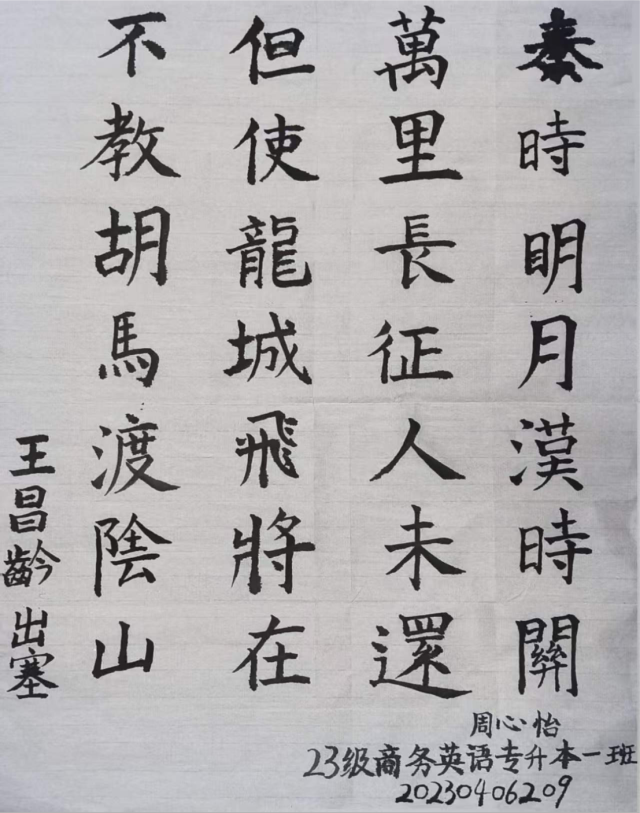 秦時明月漢時關
萬里長征人未還
但使龍城飛將在
不教胡馬渡陰山
王昌齡 出塞
周心怡
23级商务英语专升本一班
20230406209